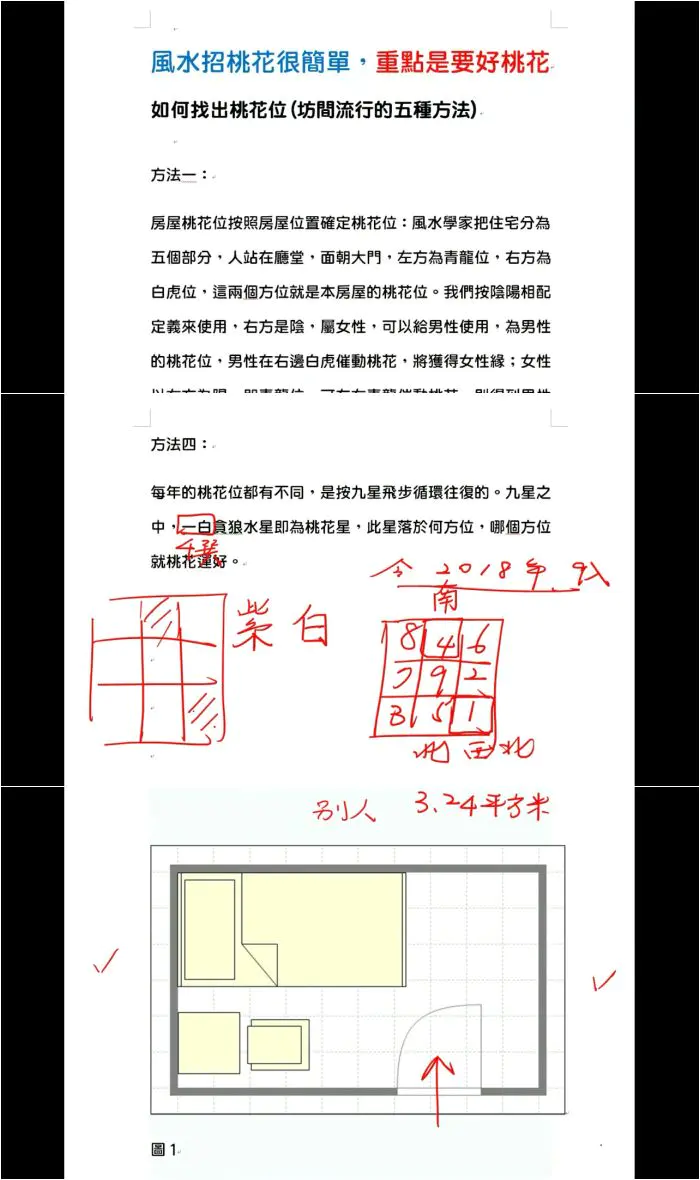 風水招桃花很簡單，重點是要好桃花
如何找出桃花位(坊間流行的五種方法)
方法一：
房屋桃花位按照房屋位置確定桃花位：風水學家把住宅分為
五個部分，人站在廳堂，面朝大門，左方為青龍位，右方為
白虎位，這兩個方位就是本房屋的桃花位。我們按陰陽相配
定義來使用，右方是陰，屬女性，可以給男性使用，為男性
的桃花位，男性在右邊白虎催動桃花，將獲得女性緣；女性
方法四：
每年的桃花位都有不同，是按九星飛步循環往復的。九星之
中，一白貪狼水星即為桃花星，此星落於何方位，哪個方位
就桃花運好。
4
今 2018年.
南
紫白
8 4 6
7 9 2
3 5 1
北 西北
別人 3.24平方米
圖 1